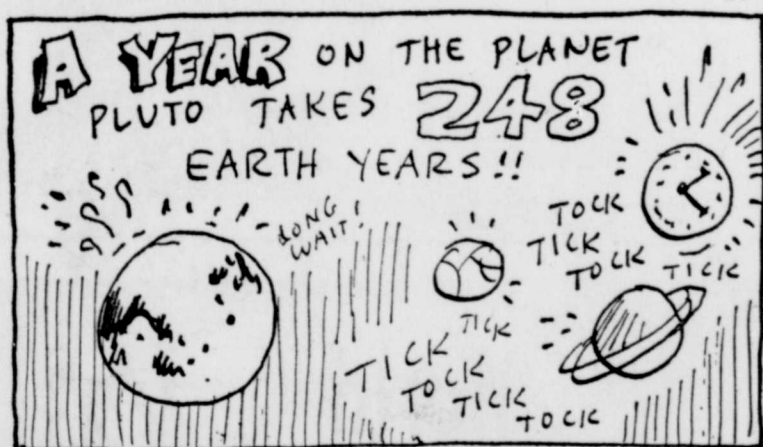 A YEAR ON THE PLANET
PLUTO TAKES 248
EARTH YEARS!!
LONG
WAIT!
TOCK
TICK
TOCK
TICK
TICK
TICK
TOCK
TICK
TOCK